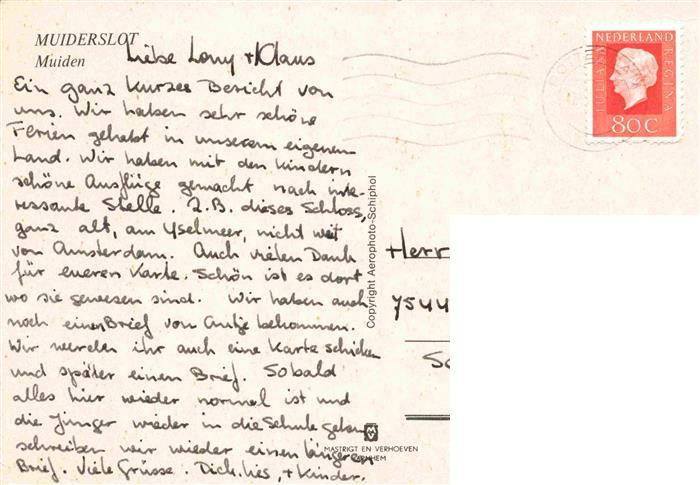 MUIDERSLOT
Muiden
Liebe Lony + Klaus
Ein ganz kurzes Bericht von
uns. Wir haben sehr schöne
Ferien gehabt in unserem eigenen
Land. Wir haben mit den kindern
schöne Ausflüge gemacht nach inte-
ressante Stelle. Z.B. dieses Schloss,
ganz alt, am Yselmeer, nicht weit
von Amsterdam. Auch vielen Dank
für eueren Karte. Schön ist es dort
wo sie gewesen sind. Wir haben auch
noch einen Brief von Antje bekommen.
Wir werden ihr auch eine Karte schicken
und später einen Brief. Sobald
alles hier wieder normal ist und
die Jünger wieder in die Schule gehen
schreiben wir wieder einen längeren
Brief. Viele Grüsse. Dick, lies, + Kinder.
Copyright Aerophoto-Schiphol
MASTRIGT EN VERHOEVEN
ARNHEM
NEDERLAND
JULIANA
REGINA
80 C
Herr
7544